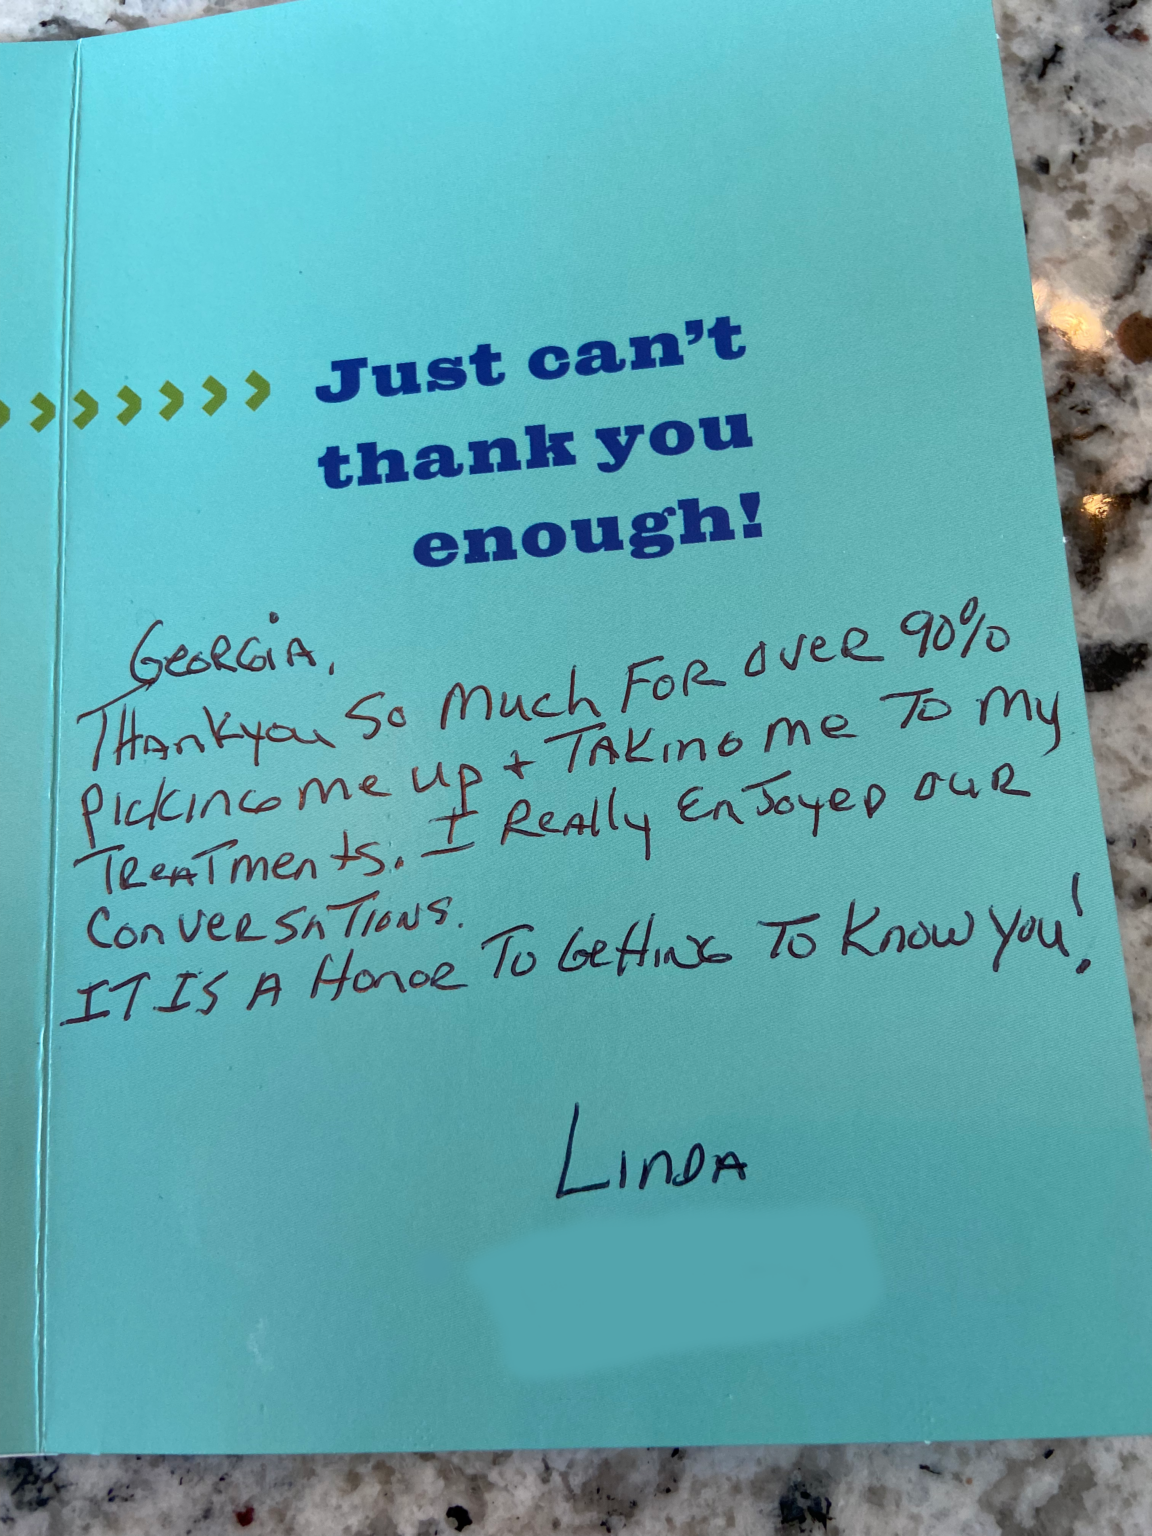 Just can't
thank you
enough!
Georgia,
Thank you so much for over 90%
picking me up + taking me to my
treatments. I really enjoyed our
conversations.
It is a honor to getting to know you!
Linda